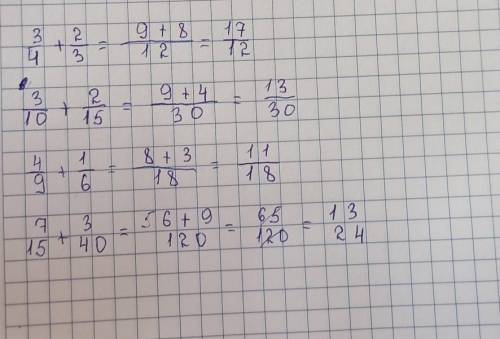 3/4 + 2/3 = (9 + 8)/12 = 17/12
3/10 + 2/15 = (9 + 4)/30 = 13/30
4/9 + 1/6 = (8 + 3)/18 = 11/18
7/15 + 3/40 = (56 + 9)/120 = 65/120 = 13/24